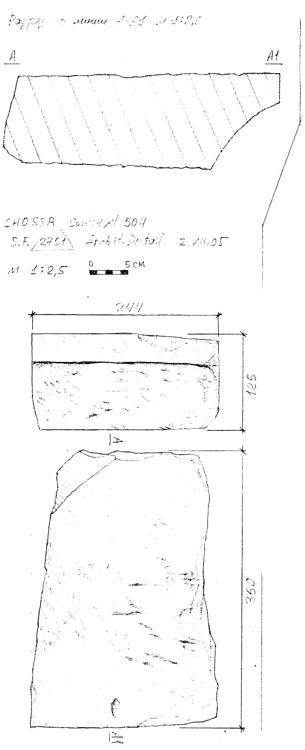 Разрез по линии А-А1 М 1:2,5
А А1
CHOSSA Context 504
S.F. 2751 Archit. Detail 2.VII.05
М 1:2,5 0 5 CM
244
125
А
360
А1